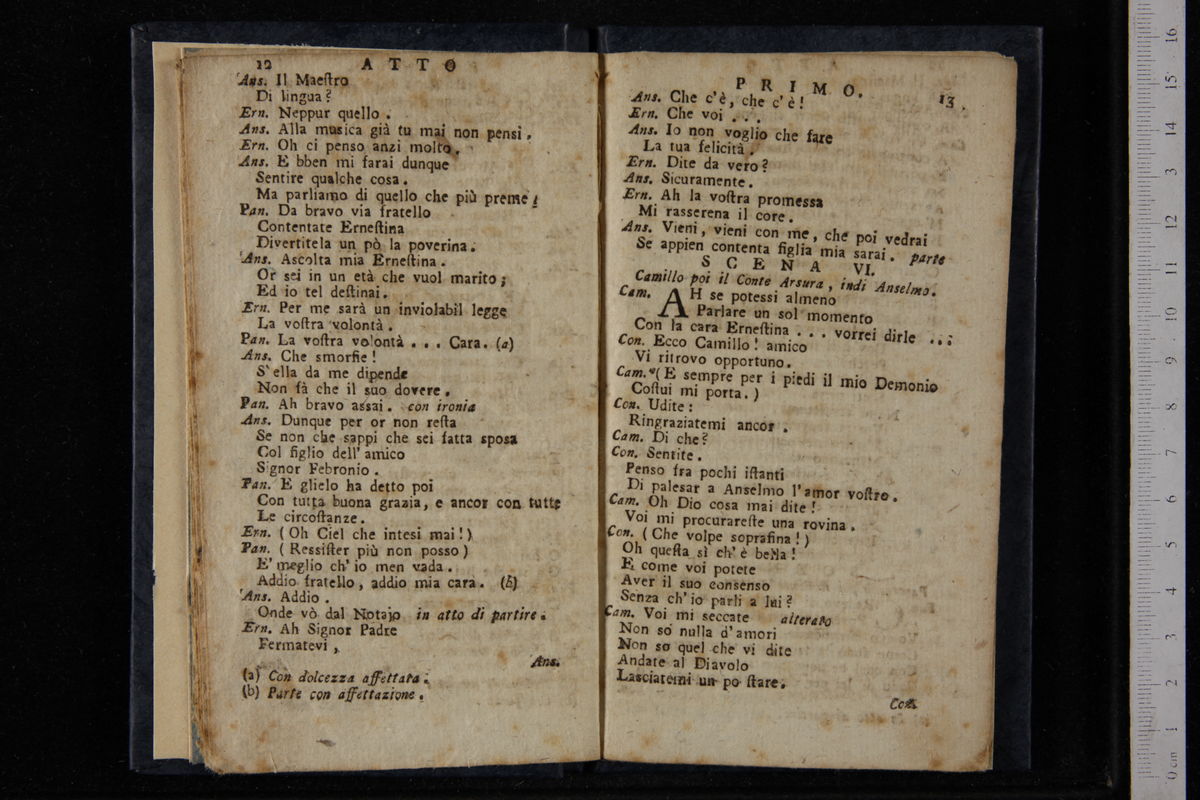 12 ATTO
Ans. Il Maeſtro
Di lingua?
Ern. Neppur quello.
Ans. Alla musica già tu mai non pensi.
Ern. Oh ci penso anzi molto.
Ans. E bben mi farai dunque
Sentire qualche cosa.
Ma parliamo di quello che più preme!
Pan. Da bravo via fratello
Contentate Erneſtina
Divertitela un pò la poverina.
Ans. Ascolta mia Erneſtina.
Or sei in un età che vuol marito;
Ed io tel deſtinai.
Ern. Per me sarà un inviolabil legge
La voſtra volontà.
Pan. La voſtra volontà . . . Cara. (a)
Ans. Che smorfie!
S'ella da me dipende
Non fà che il suo dovere.
Pan. Ah bravo assai. con ironia
Ans. Dunque per or non reſta
Se non che sappi che sei fatta sposa
Col figlio dell'amico
Signor Febronio.
Pan. E glielo ha detto poi
Con tutta buona grazia, e ancor con tutte
Le circoſtanze.
Ern. (Oh Ciel che intesi mai!)
Pan. (Ressiſter più non posso)
E' meglio ch'io men vada.
Addio fratello, addio mia cara. (b)
Ans. Addio.
Onde vò dal Notajo in atto di partire.
Ern. Ah Signor Padre
Fermatevi,
Ans.
(a) Con dolcezza affettata.
(b) Parte con affettazione.
PRIMO. 13.
Ans. Che c'è, che c'è!
Ern. Che voi . . .
Ans. Io non voglio che fare
La tua felicità.
Ern. Dite da vero?
Ans. Sicuramente.
Ern. Ah la voſtra promessa
Mi rasserena il core.
Ans. Vieni, vieni con me, che poi vedrai
Se appien contenta figlia mia sarai. parte
SCENA VI.
Camillo poi il Conte Arsura, indi Anselmo.
Cam. AH se potessi almeno
Parlare un sol momento
Con la cara Erneſtina . . . vorrei dirle . . .
Con. Ecco Camillo! amico
Vi ritrovo opportuno.
Cam. (E sempre per i piedi il mio Demonio
Coſtui mi porta.)
Con. Udite:
Ringraziatemi ancor.
Cam. Di che?
Con. Sentite.
Penso fra pochi iſtanti
Di palesar a Anselmo l'amor voſtro.
Cam. Oh Dio cosa mai dite!
Voi mi procurareſte una rovina.
Con. (Che volpe soprafina!)
Oh queſta sì ch'è bella!
E come voi potete
Aver il suo consenso
Senza ch'io parli a lui?
Cam. Voi mi seccate alterato
Non so nulla d'amori
Non so quel che vi dite
Andate al Diavolo
Lasciatemi un po ſtare.
Con.